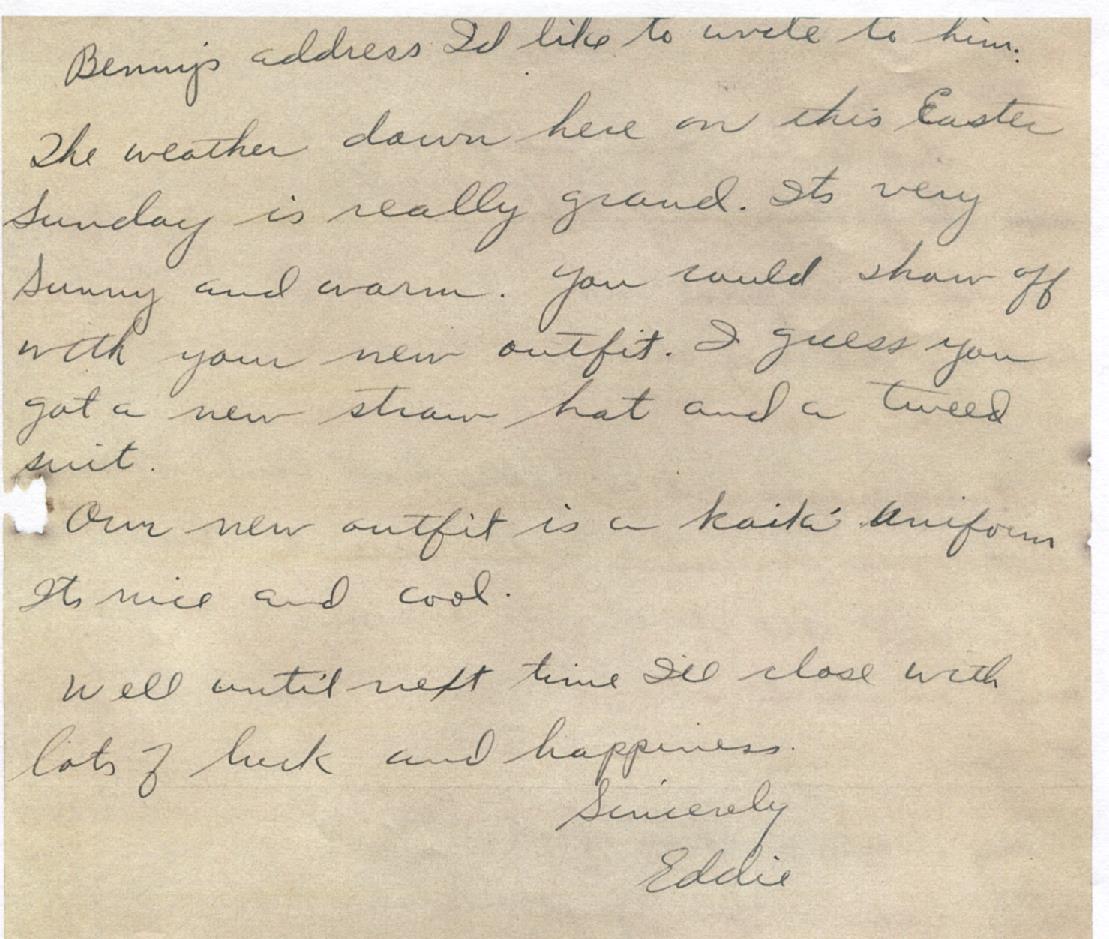 Benny's address I'd like to write to him.
The weather down here on this Easter
Sunday is really grand. Its very
Sunny and warm. You could show off
with your new outfit. I guess you
got a new straw hat and a tweed
suit.
Our new outfit is a kaiki uniform
Its nice and cool.
Well until next time I'll close with
lots of luck and happiness.
Sincerely
Eddie